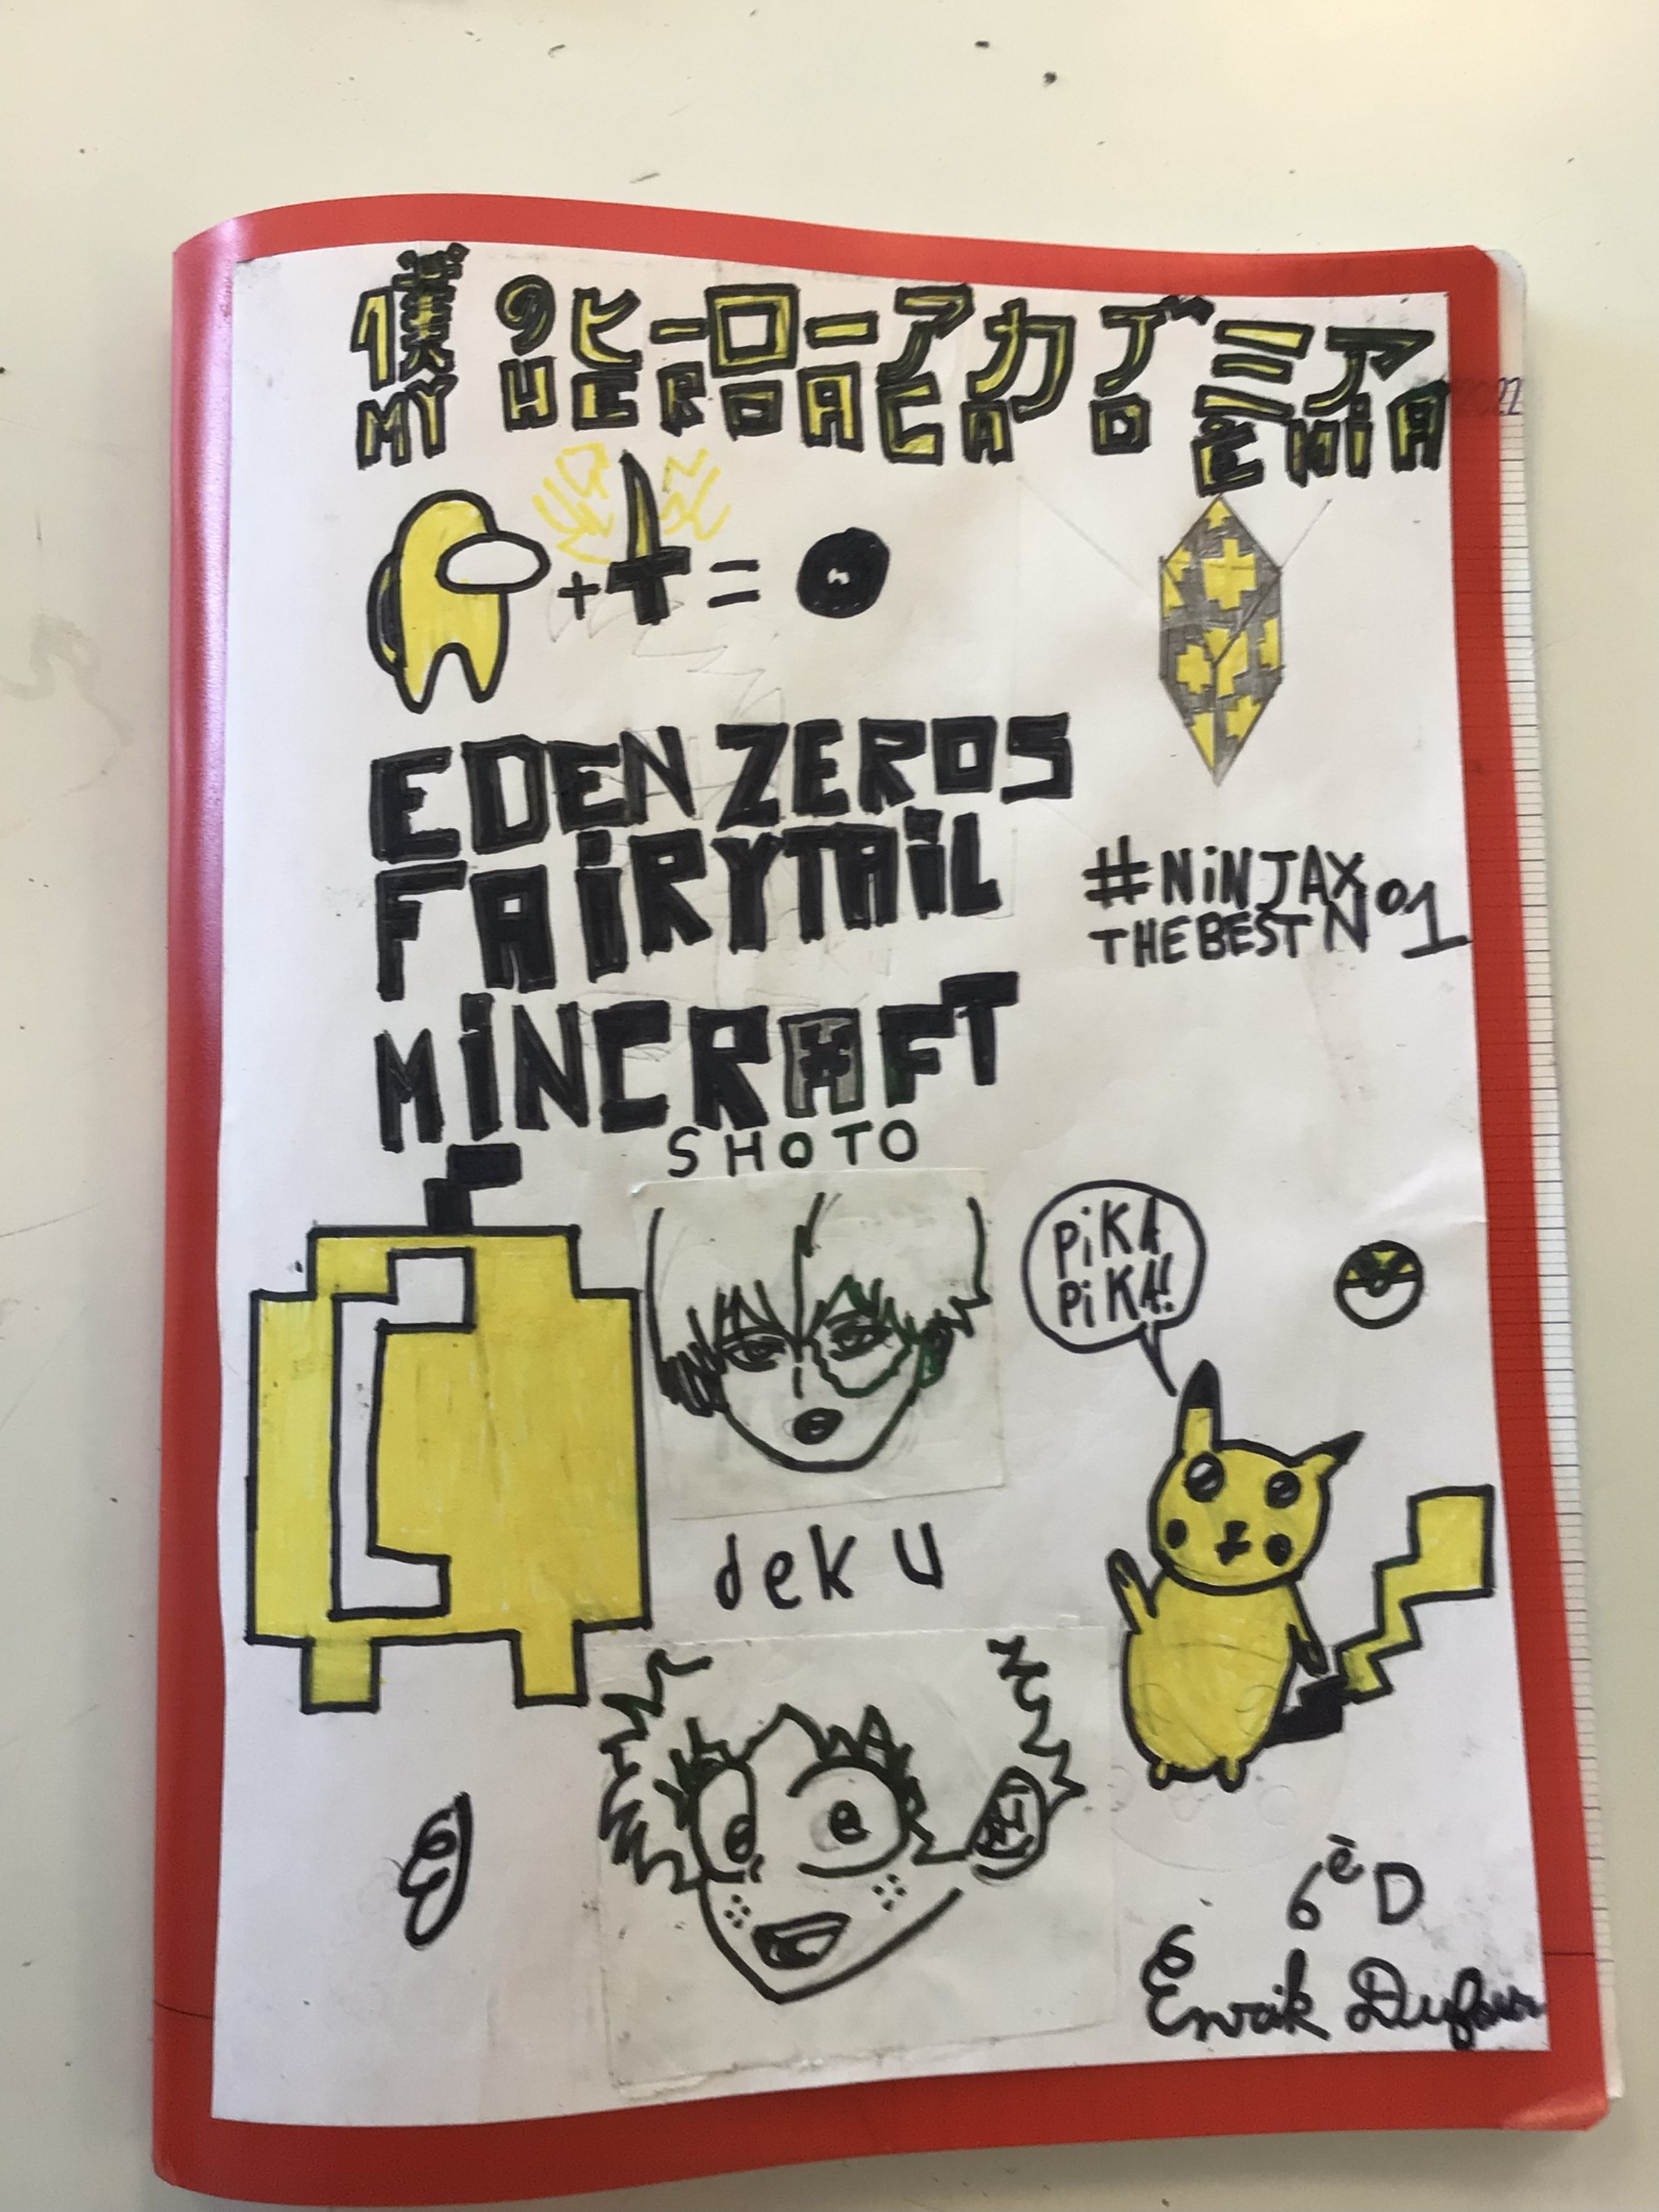 僕のヒーローアカデミア
MY HEROACADEMIA
+ =
EDENZEROS
FAIRYTAIL
#NiNJAX
THEBEST N°1
MiNCRAFT
SHOTO
PiKA
PiKA!!
deKU
6èD
Enrik Dufour